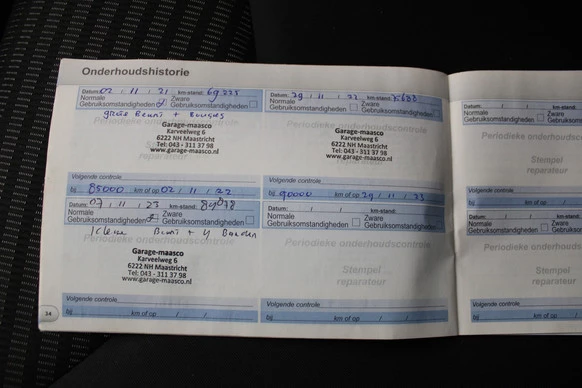 Onderhoudshistorie
Datum: 02 / 11 / 21 km-stand: 69.225
Normale Zware
Gebruiksomstandigheden Gebruiksomstandigheden
grote Beurt + Bougies
Garage-maasco
Karveelweg 6
6222 NH Maastricht
Tel: 043 - 311 37 98
www.garage-maasco.nl
Volgende controle
85000 km of op 02 / 11 / 22
Datum: 29 / 11 / 22 km-stand:
Normale Zware
Gebruiksomstandigheden Gebruiksomstandigheden
Periodieke onderhoudscontrole
Garage-maasco
Karveelweg 6
6222 NH Maastricht
Tel: 043 - 311 37 98
www.garage-maasco.nl
reparateur
Volgende controle
90000 km of op 29 / 11 / 23
Datum: 07 / 11 / 23 km-stand:
Normale Zware
Gebruiksomstandigheden Gebruiksomstandigheden
kleine Beurt + 4 Banden
Garage-maasco
Karveelweg 6
6222 NH Maastricht
Tel: 043 - 311 37 98
www.garage-maasco.nl
Volgende controle
bij km of op / /
Datum: / / km-stand:
Normale Zware
Gebruiksomstandigheden Gebruiksomstandigheden
Periodieke onderhoudscontrole
Stempel
reparateur
Volgende controle
bij km of op / /
34
Datum: / /
Normale
Gebruiksomstandigheden
Periodieke onderhoudscontrole
Stempel
reparateur
Volgende controle
bij km of op /
Datum: / /
Normale
Gebruiksomstandigheden
Periodieke onderhoudsco
Stempel
reparateur
Volgende controle
bij km of op /